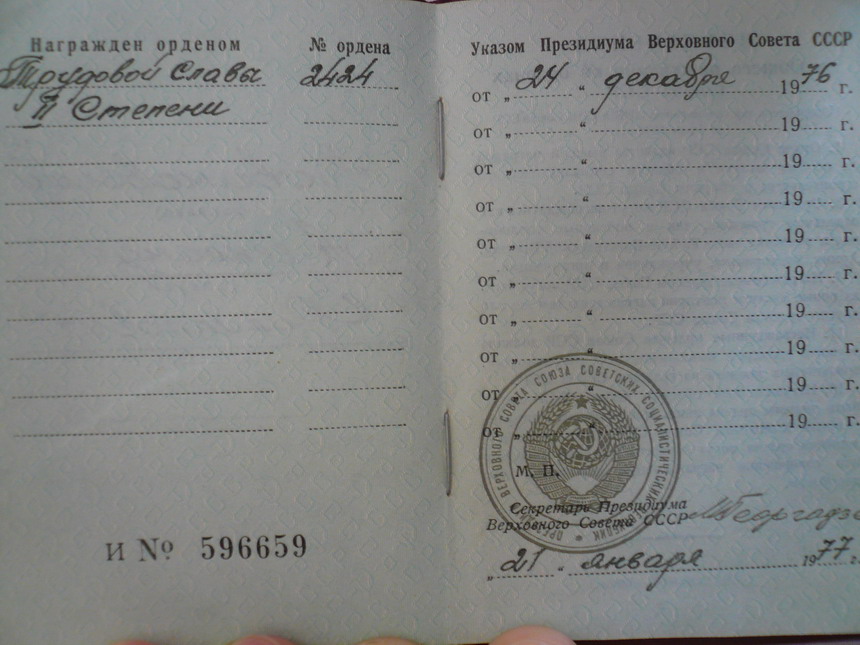 Награжден орденом
№ ордена
Трудовой Славы
2424
II Степени
И № 596659
Указом Президиума Верховного Совета СССР
от „ 24 “ декабря 1976 г.
от „ “ 19 г.
от „ “ 19 г.
от „ “ 19 г.
от „ “ 19 г.
от „ “ 19 г.
от „ “ 19 г.
от „ “ 19 г.
от „ “ 19 г.
от „ “ 19 г.
ПРЕЗИДИУМ ВЕРХОВНОГО СОВЕТА СОЮЗА СОВЕТСКИХ СОЦИАЛИСТИЧЕСКИХ РЕСПУБЛИК
М. П.
Секретарь Президиума
Верховного Совета СССР МГеоргадзе
„ 21 “ января 1977 г.